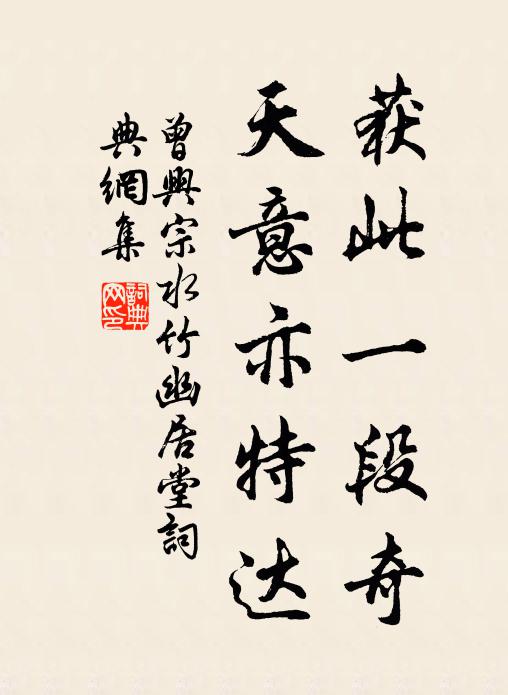 获此一段奇
天意亦特达
曾興宗水竹幽居堂詞
典網集
詞典网印